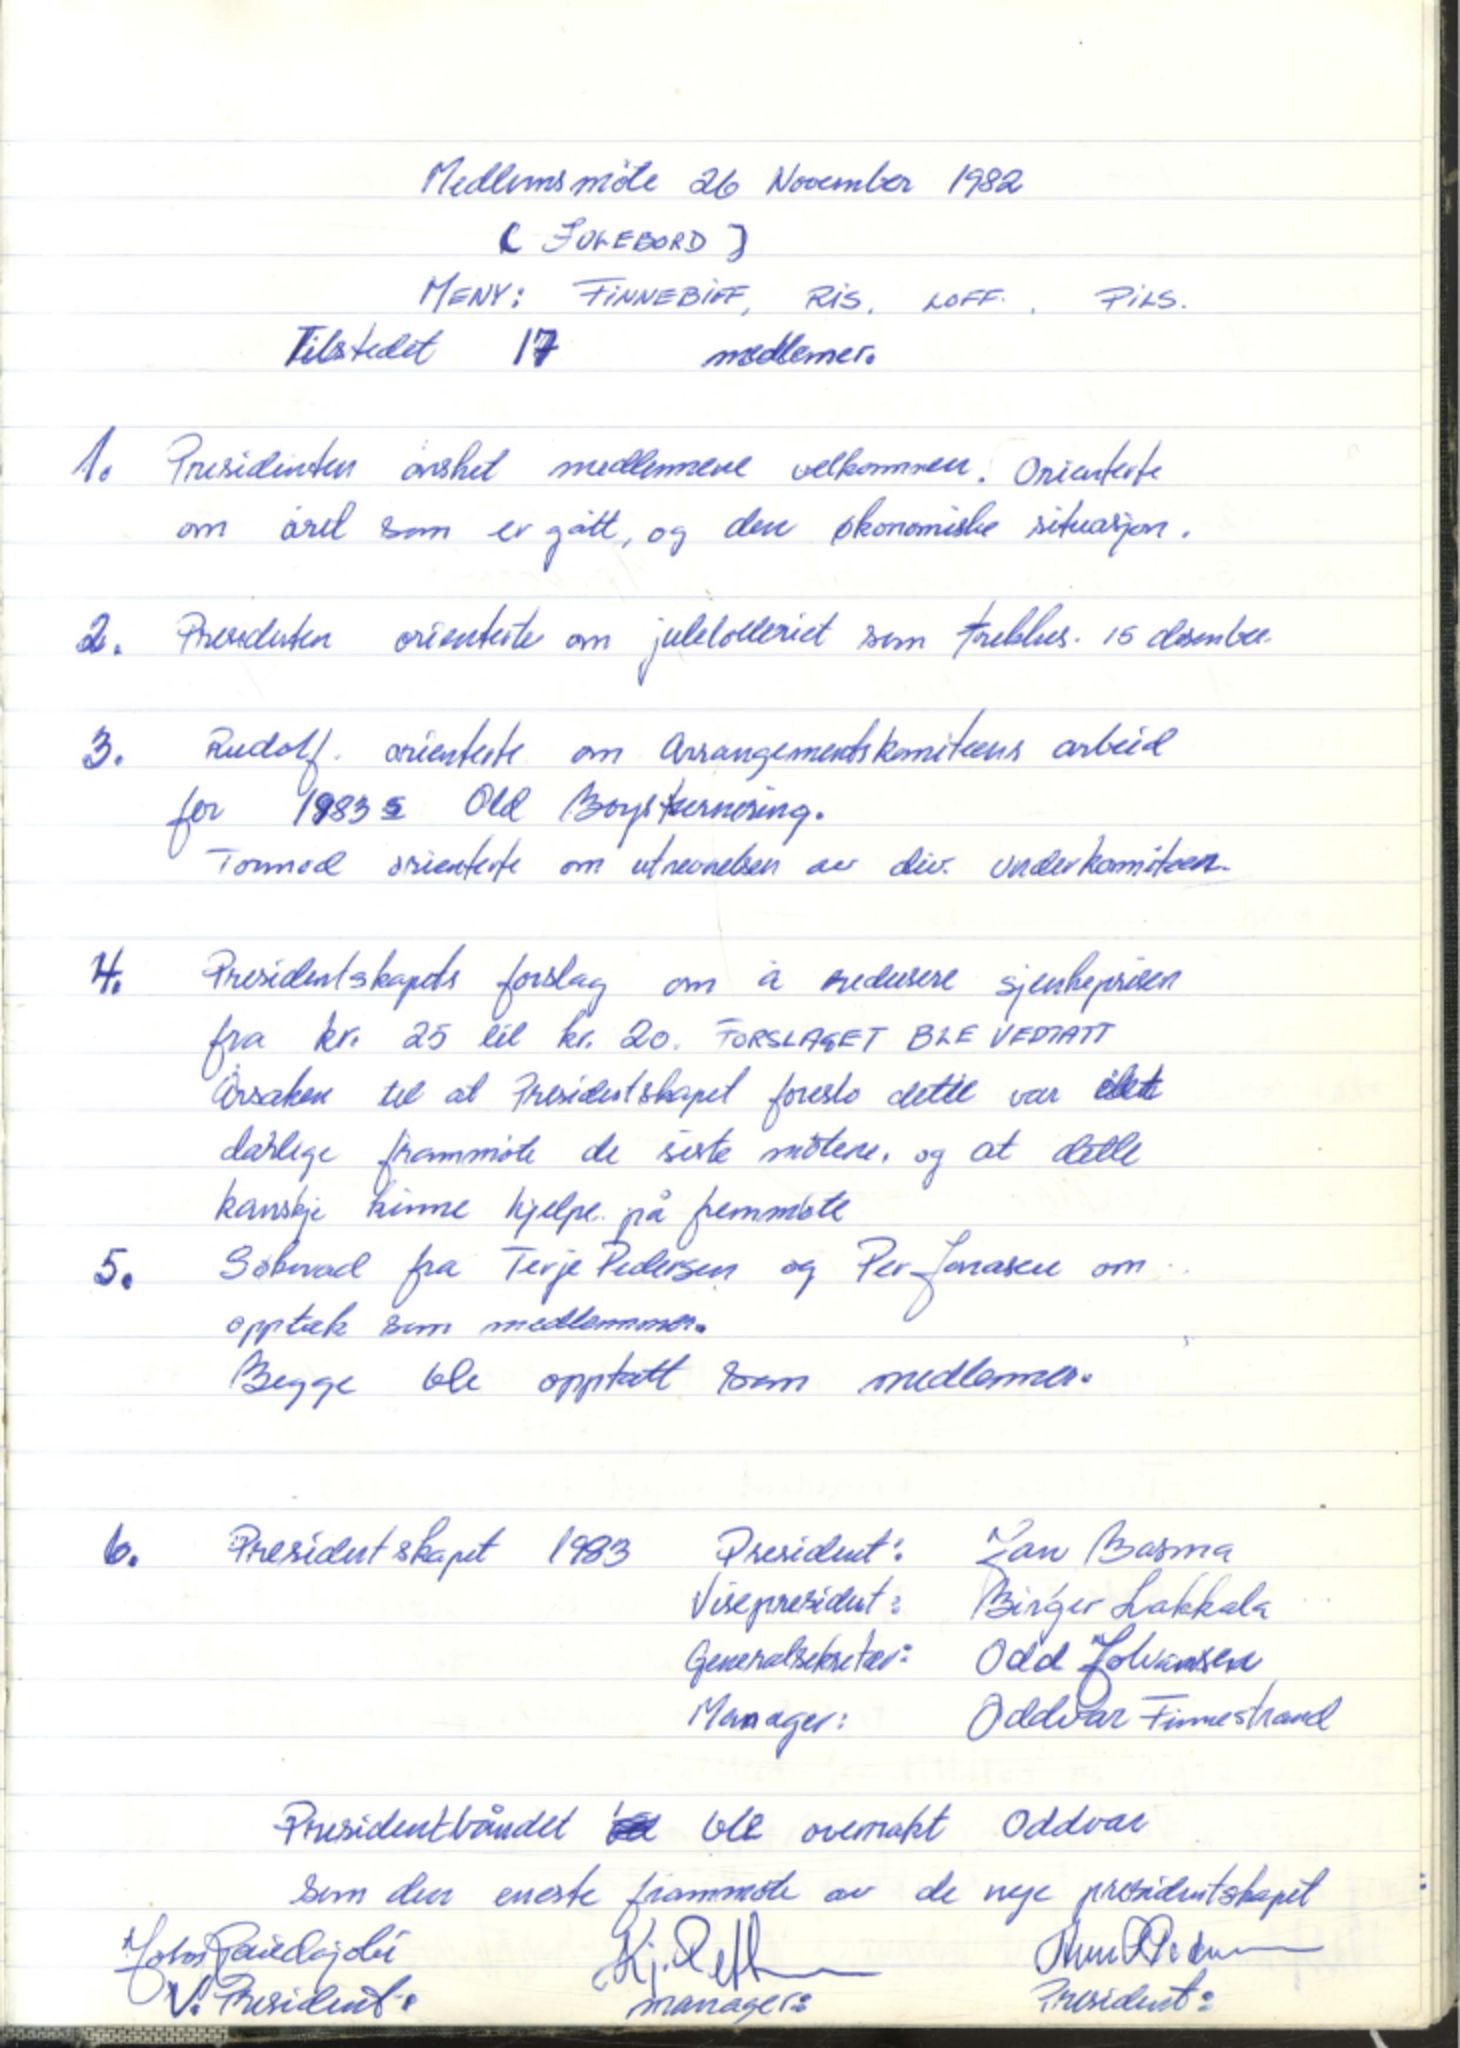 Medlemsmöte 26 November 1982
( JULEBORD )
MENY: FINNEBIFF, RIS, LOFF. , PILS.
Tilstedet 17 medlemer.
1. Presidenten ønsket medlemmene velkommen. Orienterte
om året som er gått, og den økonomiske situasjon.
2. Presidenten orienterte om julelotteriet som trekkes. 15 desember.
3. Rudolf. orienterte om Arrangementskomiteens arbeid
for 1983s Old Boysturnering.
Tormod orienterte om utnevnelsen av div. underkomiteer.
4. Presidentskapets forslag om å redusere sjenkeprisen
fra kr. 25 til kr. 20. FORSLAGET BLE VEDTATT
Årsaken til at Presidentskapet foreslo dette var det
dårlige frammöte de siste mötene. og at dette
kanskje kunne hjelpe på fremmöte
5. Söknad fra Terje Pedersen og Per Jonasen om
opptak som medlemmer.
Begge ble opptatt som medlemer.
6. Presidentskapet 1983 President: Jan Basma
Visepresident: Birger Lakkala
Generalsekretær: Odd Johansen
Manager: Oddvar Finnestrand
Presidentbåndet ble overrakt Oddvar
som den eneste frammöte av de nye presidentskapet
V. President: manager: President: